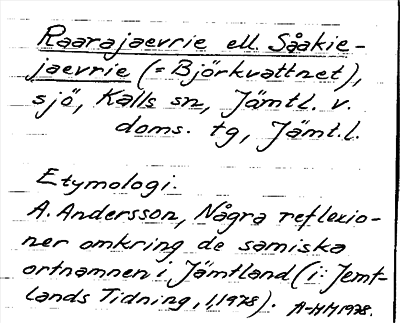 Raarajaevrie ell. Såakie-
jaevrie (= Björkvattnet),
sjö, Kalls sn, Jämtl. v.
doms. tg, Jämt.l.
Etymologi.
A. Andersson, Några reflexio-
ner omkring de samiska
ortnamnen i Jämtland (i: Jemt-
lands Tidning, 1,1978). A-HM 1978.